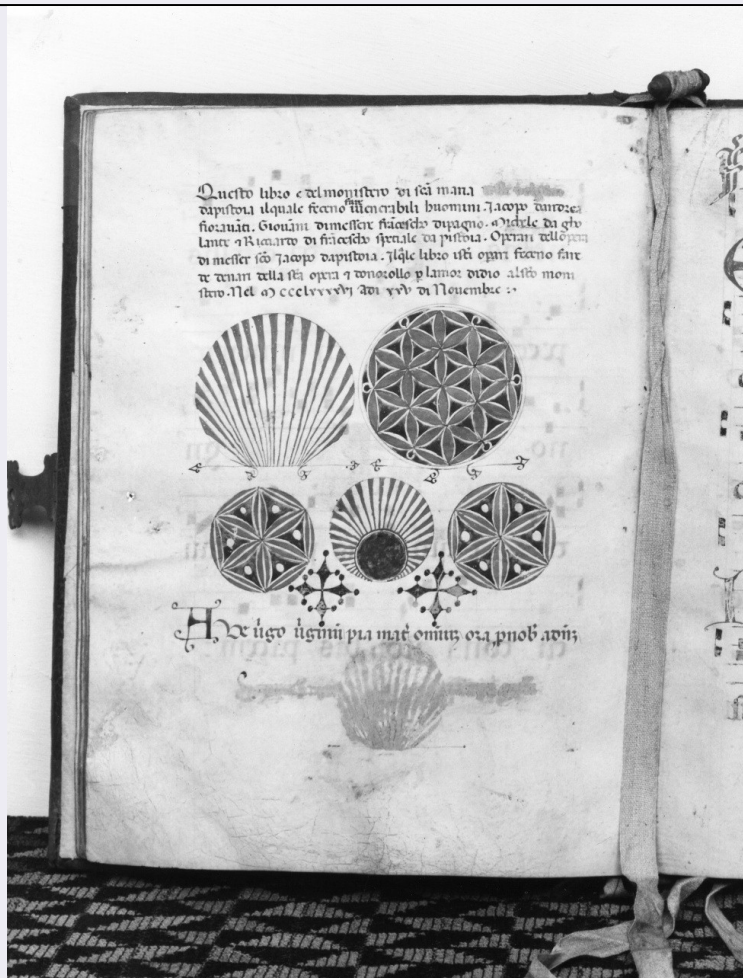 Questo libro e del monistero di sc̄a maria
dapistoia ilquale feceno fare iuenerabili huomini Jacopo dandrea
fioravāti. Giovāni dimessere frācescho dipagno. Michele da ghe
lante ⁊ Ricciardo di frācescho spetiale da pistoia. Operari dellopera
di messer sc̄o Jacopo dapistoia. Jlq̄le libro isti oparī feceno fare
de denari della sc̄a opera ⁊ donorollo p̱ lamor didio alsc̄o moni
stero. Nel M ccclxxxxvi Adi xxv di Novembre :·
AVe ṽgo ṽginū pia mat̃ omiuʒ ora p̱nob̃ adnʒ